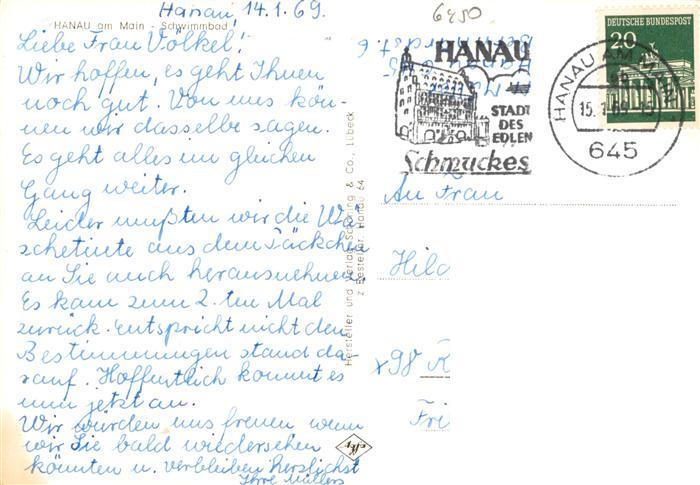 Hanau, 14.1.69.
6450
HANAU am Main - Schwimmbad
Liebe Frau Völkel!
Wir hoffen, es geht Ihnen
noch gut. Von uns kön-
nen wir dasselbe sagen.
Es geht alles im gleichen
Gang weiter.
Leider mußten wir die Wä
schetinte aus dem Päckchen
an Sie auch herausnehmen.
Es kam zum 2. ten Mal
zurück. Entspricht nicht den
Bestimmungen stand da-
rauf. Hoffentlich kommt es
nun jetzt an.
Wir würden uns freuen wenn
wir Sie bald wiedersehen
könnten u. verbleiben herzlichst
Ihre Müllers
Hersteller und Verlag Schöning & Co., Lübeck
Z Bestellnr. Hanau 64
HANAU
STADT
DES
EDLEN
Schmuckes
HANAU AM
15. 1.69-
645
DEUTSCHE BUNDESPOST
20
An Frau
Hild
x98